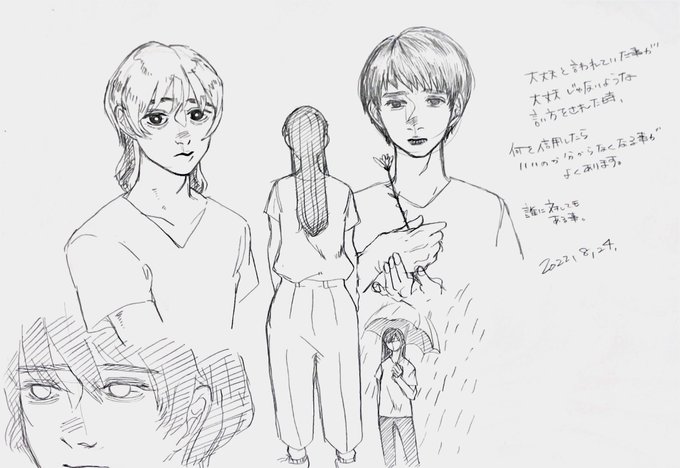 大丈夫と言われていた事が
大丈夫じゃないような
言い方をされた時、
何を信用したら
いいのか分からなくなる事が
よくあります。
誰に対しても
ある事。
2022.8.24.